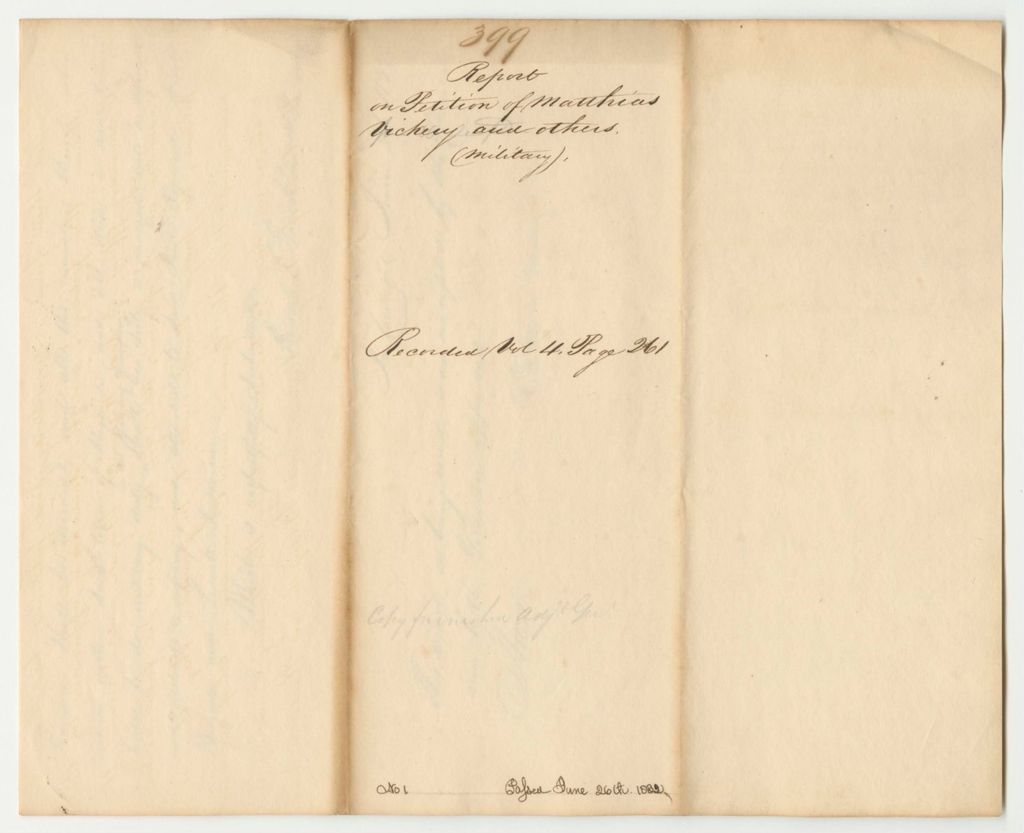 399
Report
on Petition of Matthias
Vickery and others.
(Military).
Recorded Vol 4. Page 261
Copy furnished Adjt Genl
No 1 Passed June 26th. 1832